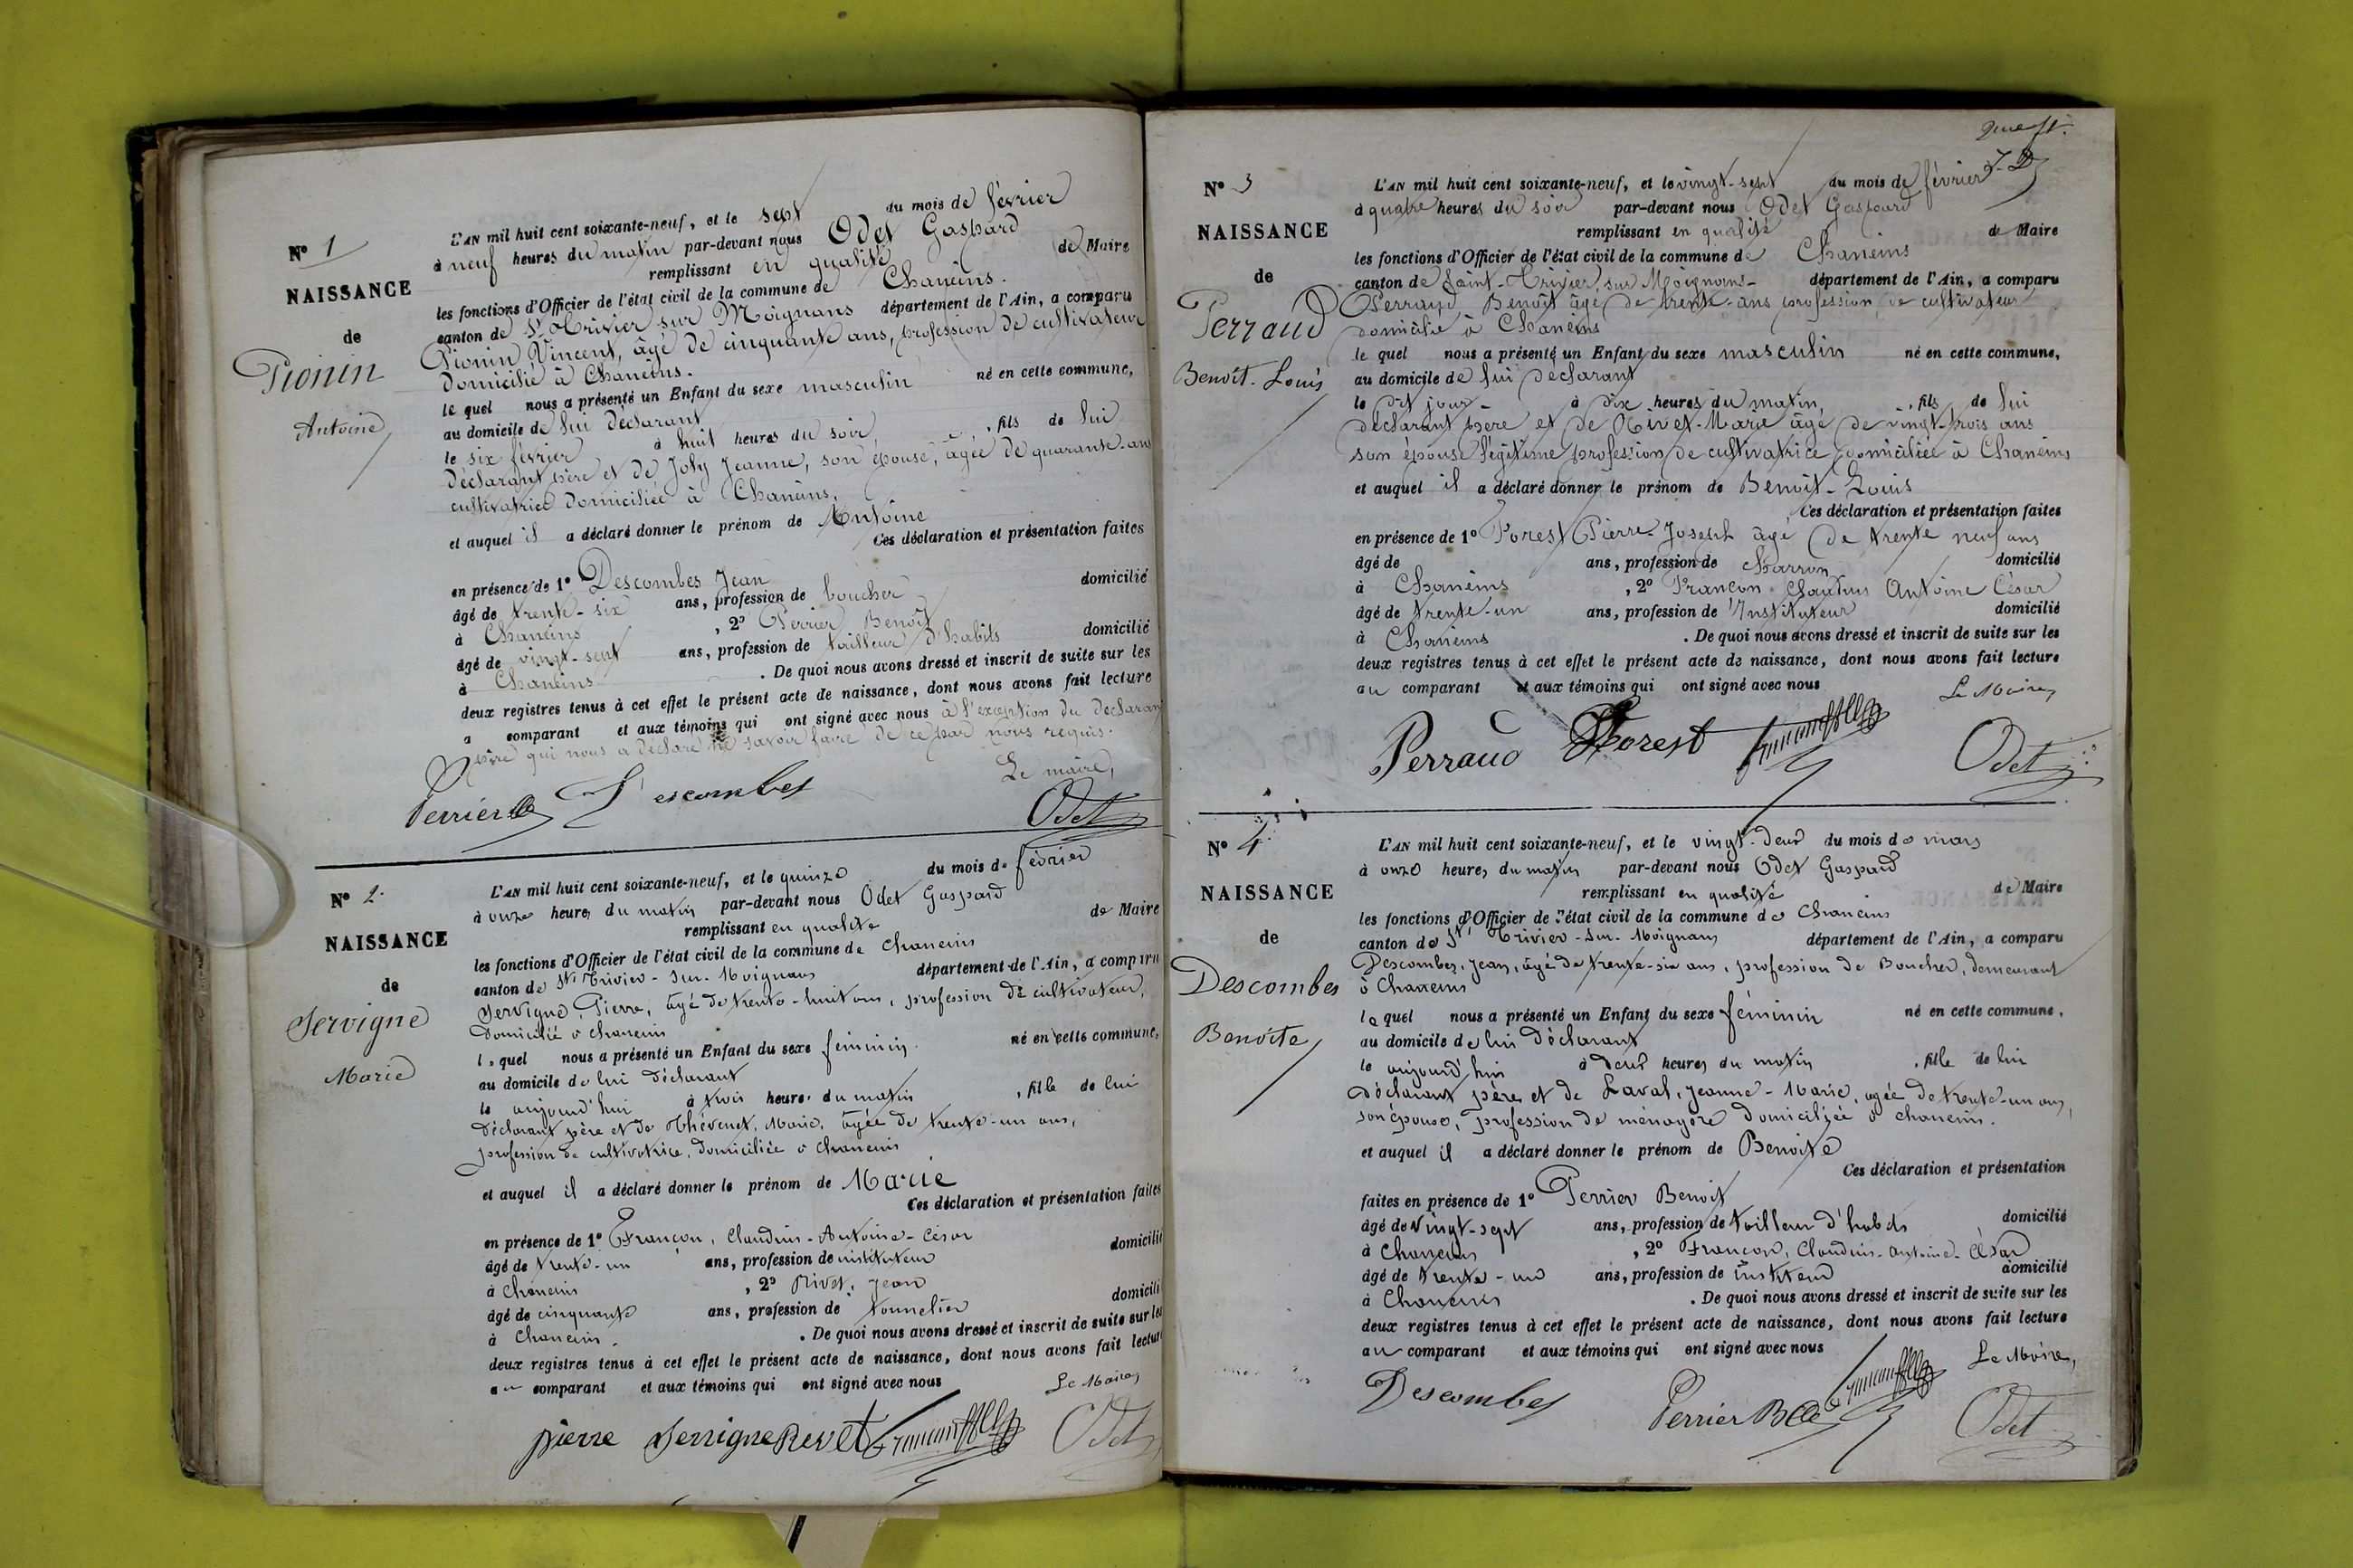 N° 1
NAISSANCE
de
Pionin
Antoine
L'AN mil huit cent soixante-neuf, et le sept du mois de février
à neuf heures du matin par-devant nous Odet Gaspard
remplissant en qualité de Maire
les fonctions d'Officier de l'état civil de la commune de Chaneins.
canton de St Trivier sur Moignans département de l'Ain, a comparu
Pionin Vincent, âgé de cinquante ans, profession de cultivateur
domicilié à Chaneins.
le quel nous a présenté un Enfant du sexe masculin né en cette commune,
au domicile de lui déclarant
le six février à huit heures du soir, , fils de lui
déclarant père et de Joly Jeanne, son épouse, âgée de quarante-ans
cultivatrice domiciliée à Chaneins.
et auquel il a déclaré donner le prénom de Antoine
Ces déclaration et présentation faites
en présence de 1° Descombes Jean
âgé de trente-six ans, profession de boucher domicilié
à Chaneins , 2° Perrier Benoît
âgé de vingt-sept ans, profession de tailleur d'habits domicilié
à Chaneins . De quoi nous avons dressé et inscrit de suite sur les
deux registres tenus à cet effet le présent acte de naissance, dont nous avons fait lecture
a comparant et aux témoins qui ont signé avec nous à l'exception du déclarant
père qui nous a déclaré ne savoir faire de ce par nous requis.
Le maire,
Perrier Descombes Odet
N° 2.
NAISSANCE
de
Servigne
Marie
L'AN mil huit cent soixante-neuf, et le quinze du mois de février
à onze heures du matin par-devant nous Odet Gaspard
remplissant en qualité de Maire
les fonctions d'Officier de l'état civil de la commune de Chaneins
canton de St Trivier-sur-Moignans département de l'Ain, a comparu
Servigne, Pierre, âgé de trente-huit ans, profession de cultivateur,
domicilié à Chaneins
lequel nous a présenté un Enfant du sexe féminin. né en cette commune,
au domicile de lui déclarant
le aujourd'hui à trois heures du matin , fille de lui
déclarant père et de Thévenet, Marie, âgée de trente-un ans,
profession de cultivatrice, domiciliée à Chaneins
et auquel il a déclaré donner le prénom de Marie
Ces déclaration et présentation faites
en présence de 1° Françon, Claudius-Antoine-César
âgé de trente-un ans, profession de instituteur domicilié
à Chaneins , 2° Rivet, Jean
âgé de cinquante ans, profession de tonnelier domicilié
à Chaneins. . De quoi nous avons dressé et inscrit de suite sur les
deux registres tenus à cet effet le présent acte de naissance, dont nous avons fait lecture
au comparant et aux témoins qui ont signé avec nous Le Maire,
pierre Servigne Revet Odet
2me f.
N° 3
NAISSANCE
de
Perraud
Benoît-Louis
L'AN mil huit cent soixante-neuf, et le vingt-sept du mois de février
à quatre heures du soir par-devant nous Odet Gaspard
remplissant en qualité de Maire
les fonctions d'Officier de l'état civil de la commune de Chaneins
canton de Saint-Trivier, sur Moignans- département de l'Ain, a comparu
Perraud Benoît âgé de trente-ans profession de cultivateur
domicilié à Chaneins
le quel nous a présenté un Enfant du sexe masculin né en cette commune,
au domicile de lui déclarant
le dit jour- à dix heures du matin, , fils de lui
déclarant père et de Rivet-Marie âgé de vingt-trois ans
son épouse légitime profession de cultivatrice domiciliée à Chaneins
et auquel il a déclaré donner le prénom de Benoît-Louis
Ces déclaration et présentation faites
en présence de 1° Forest Pierre Joseph âgé de trente neuf ans
âgé de ans, profession de Charron domicilié
à Chaneins , 2° Françon Claudius Antoine César
âgé de trente-un ans, profession de Instituteur domicilié
à Chaneins . De quoi nous avons dressé et inscrit de suite sur les
deux registres tenus à cet effet le présent acte de naissance, dont nous avons fait lecture
au comparant et aux témoins qui ont signé avec nous Le Maire,
Perraud Forest Odet
N° 4
NAISSANCE
de
Descombes
Benoîte
L'AN mil huit cent soixante-neuf, et le vingt-deux du mois de mars
à onze heures du matin par-devant nous Odet Gaspard
remplissant en qualité de Maire
les fonctions d'Officier de l'état civil de la commune de Chaneins
canton de St Trivier-sur-Moignans département de l'Ain, a comparu
Descombes, Jean, âgé de trente-six ans, profession de Boucher, demeurant
à Chaneins
lequel nous a présenté un Enfant du sexe féminin né en cette commune,
au domicile de lui déclarant
le aujourd'hui à deux heures du matin , fille de lui
déclarant père et de Laval, Jeanne-Marie, âgée de trente-un ans,
son épouse, profession de ménagère domiciliée à Chaneins.
et auquel il a déclaré donner le prénom de Benoîte
Ces déclaration et présentation
faites en présence de 1° Perrier Benoit
âgé de vingt-sept ans, profession de tailleur d'habits domicilié
à Chaneins , 2° Françon, Claudius-Antoine-César
âgé de trente-un ans, profession de domicilié
à Chaneins . De quoi nous avons dressé et inscrit de suite sur les
deux registres tenus à cet effet le présent acte de naissance, dont nous avons fait lecture
au comparant et aux témoins qui ont signé avec nous Le Maire,
Descombes Perrier Odet